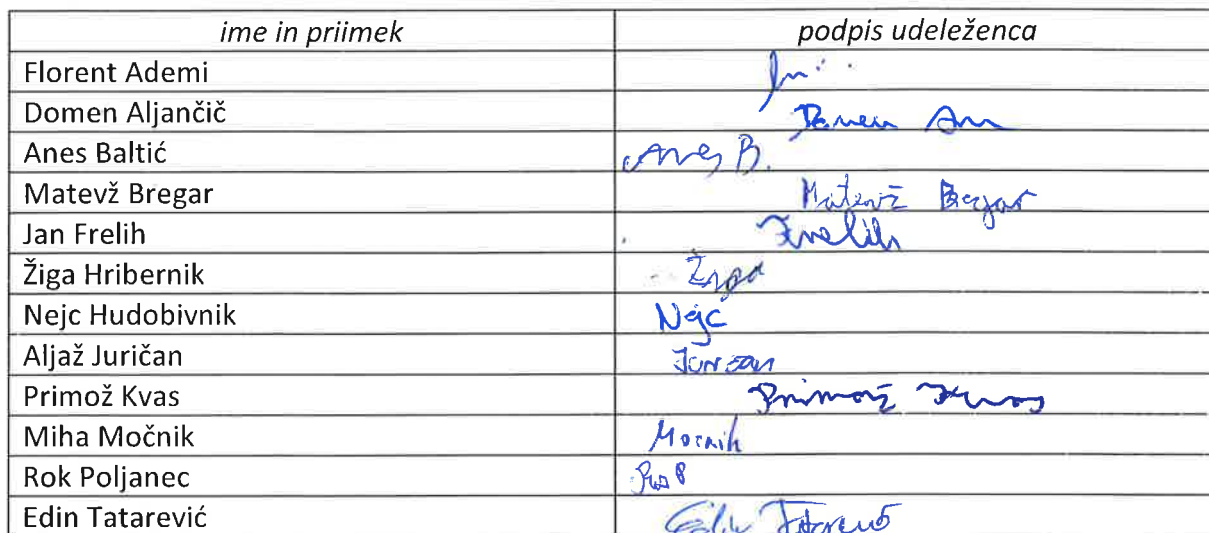 ime in priimek podpis udeleženca
Florent Ademi
Domen Aljančič Domen
Anes Baltić Anes B.
Matevž Bregar Matevž Bregar
Jan Frelih Frelih
Žiga Hribernik Žiga
Nejc Hudobivnik Nejc
Aljaž Juričan
Primož Kvas Primož Kvas
Miha Močnik Močnik
Rok Poljanec
Edin Tatarević Edin